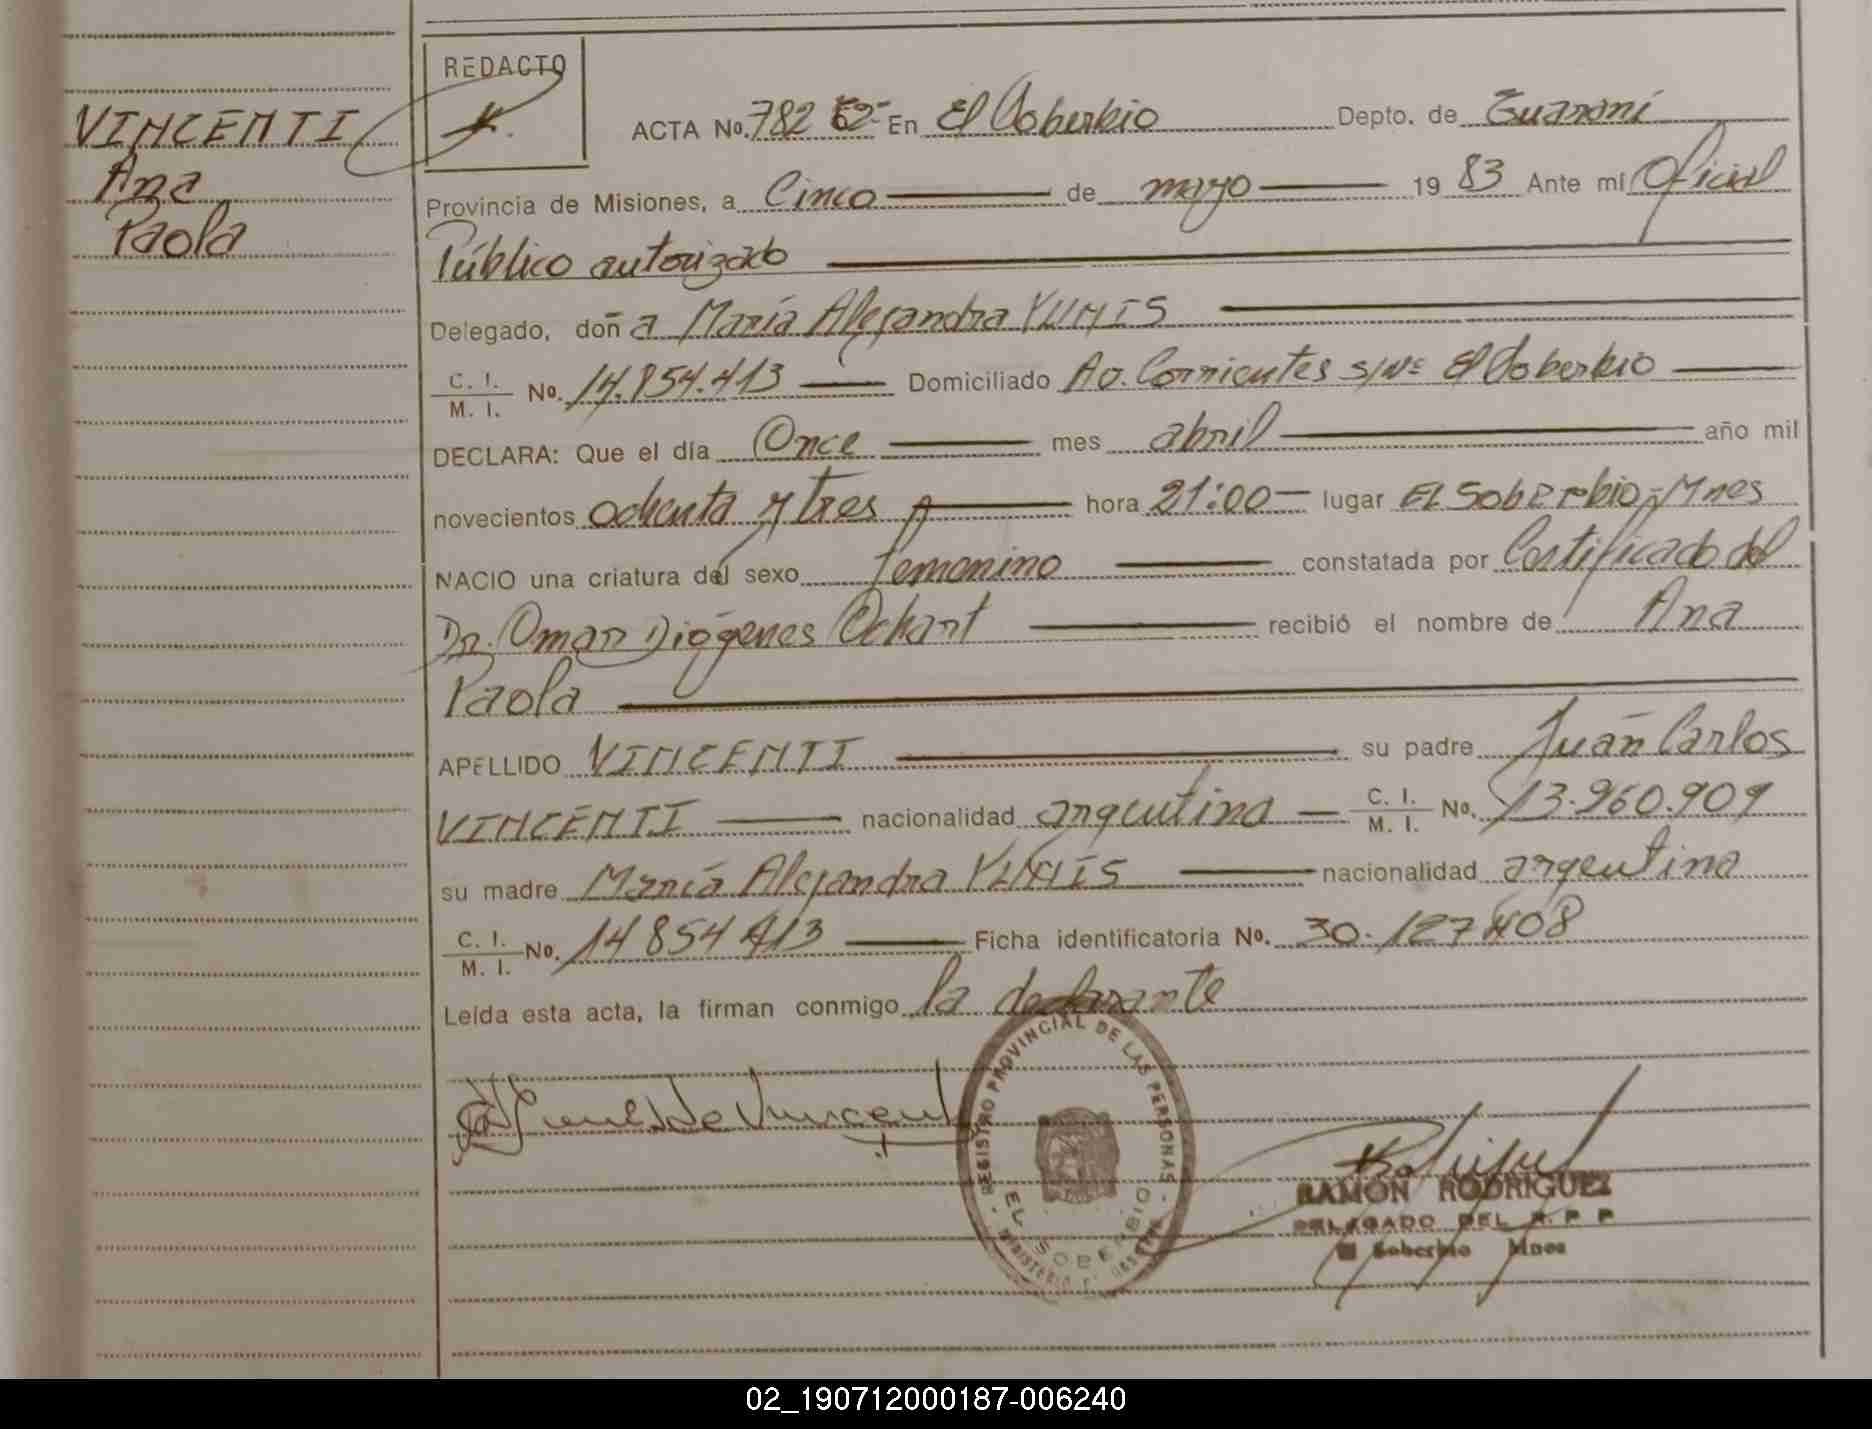 VINCENTI
Ana
Paola
REDACTO
ACTA No. 782 En El Soberbio Depto. de Guaraní
Provincia de Misiones, a Cinco de mayo 19 83 Ante mí Oficial
Público autorizado
Delegado, doñ a María Alejandra YUNIS
C. I. M. I. No. 14.854.413 Domiciliado Av. Corrientes s/Nº El Soberbio
DECLARA: Que el día Once mes abril año mil
novecientos ochenta y tres hora 21:00 lugar El Soberbio-Mnes
NACIO una criatura del sexo femenino constatada por Certificado del
Dr. Omar Diógenes Ochart recibió el nombre de Ana
Paola
APELLIDO VINCENTI su padre Juan Carlos
VINCENTI nacionalidad argentina C. I. M. I. No. 13.960.909
su madre María Alejandra YUNIS nacionalidad argentina
C. I. M. I. No. 14 854 413 Ficha identificatoria No. 30.127.408
Leída esta acta, la firman conmigo la declarante
REGISTRO PROVINCIAL DE LAS PERSONAS
EL SOBERBIO
RAMON RODRIGUEZ
DELEGADO DEL R. P. P.
El Soberbio Mnes
02_190712000187-006240